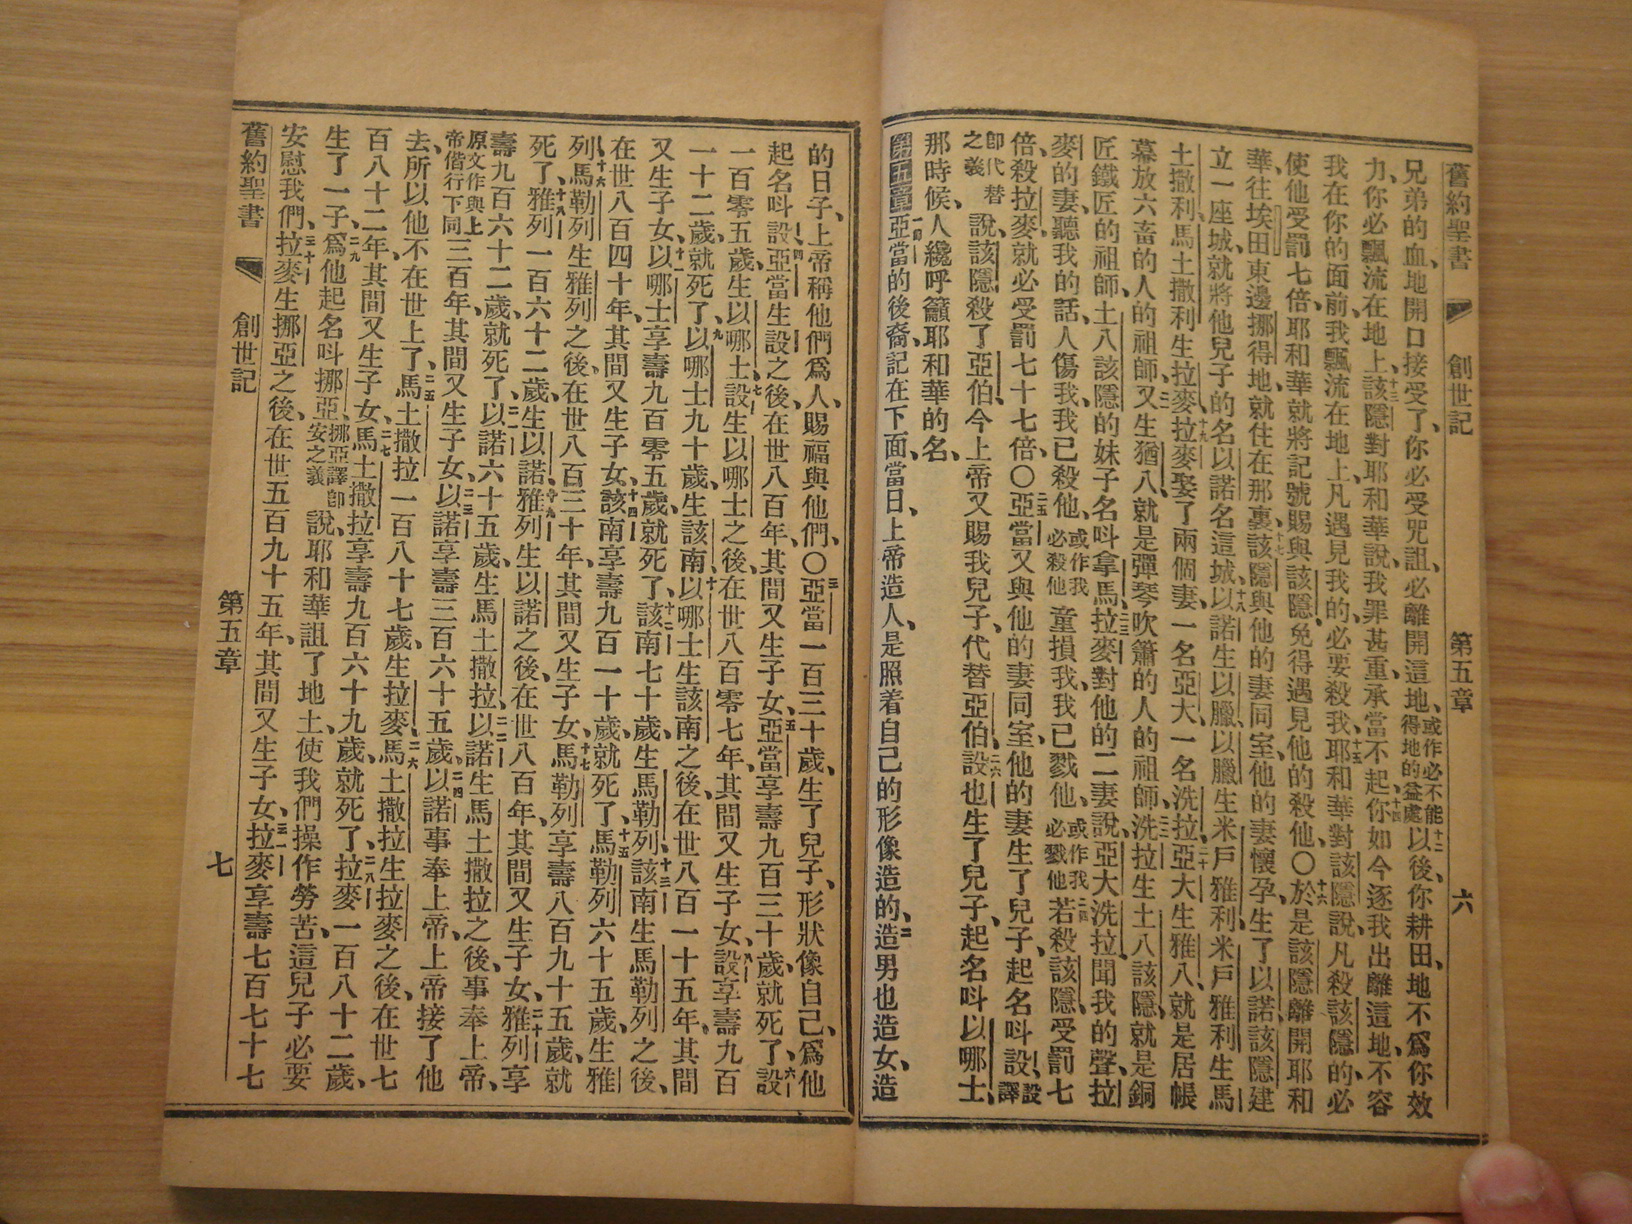 舊約聖書 創世記 第五章 六
兄弟的血、地開口接受了、你必受咒詛、必離開這地、或作必不能得地的益處十二以後、你耕田、地不爲你效
力、你必飄流在地上、十三該隱對耶和華說、我罪甚重、承當不起、十四你如今逐我出離這地、不容
我在你的面前、我飄流在地上、凡遇見我的、必要殺我、十五耶和華對該隱說、凡殺該隱的、必
使他受罰七倍、耶和華、就將記號賜與該隱、免得遇見他的殺他、〇十六於是該隱離開耶和
華、往埃田東邊挪得地、就住在那裏、十七該隱與他的妻同室、他的妻懷孕、生了以諾、該隱建
立一座城、就將他兒子的名以諾名這城、十八以諾生以臘、以臘生米戶雅利、米戶雅利生馬
土撒利、馬土撒利生拉麥、十九拉麥娶了兩個妻、一名亞大、一名洗拉、二十亞大生雅八、就是居帳
幕放六畜的人的祖師、二一又生猶八、就是彈琴吹簫的人的祖師、二二洗拉生土八該隱、就是銅
匠鐵匠的祖師、土八該隱的妹子名呌拿馬、二三拉麥對他的二妻說、亞大洗拉聞我的聲、拉
麥的妻、聽我的話、人傷我、我已殺他、或作我必殺他童損我、我已戮他、或作我必戮他二四若殺該隱、受罰七
倍、殺拉麥、就必受罰七十七倍、〇二五亞當又與他的妻同室、他的妻生了兒子、起名呌設、設譯
卽代替之義說、該隱殺了亞伯、今上帝又賜我兒子、代替亞伯、二六設也生了兒子、起名呌以哪士、
那時候、人纔呼籲耶和華的名、
第五章一亞當的後裔、記在下面、當日、上帝造人、是照着自己的形像造的、二造男也造女、造
的日子、上帝稱他們爲人、賜福與他們、〇三亞當一百三十歲、生了兒子、形狀像自己、爲他
起名呌設、四亞當生設之後、在世八百年、其間又生子女、五亞當享壽九百三十歲、就死了、六設
一百零五歲、生以哪士、七設生以哪士之後、在世八百零七年、其間又生子女、八設享壽九百
一十二歲、就死了、九以哪士九十歲、生該南、十以哪士生該南之後、在世八百一十五年、其間
又生子女、十一以哪士享壽九百零五歲、就死了、十二該南七十歲、生馬勒列、十三該南生馬勒列之後、
在世八百四十年、其間又生子女、十四該南享壽九百一十歲、就死了、十五馬勒列六十五歲、生雅
列、十六馬勒列生雅列之後、在世八百三十年、其間又生子女、十七馬勒列享壽八百九十五歲、就
死了、十八雅列一百六十二歲、生以諾、十九雅列生以諾之後、在世八百年、其間又生子女、二十雅列享
壽九百六十二歲、就死了、二一以諾六十五歲、生馬土撒拉、二二以諾生馬土撒拉之後、事奉上帝、
原文作與上帝偕行下同三百年、其間又生子女、二三以諾享壽三百六十五歲、二四以諾事奉上帝、上帝接了他
去、所以他不在世上了、二五馬土撒拉一百八十七歲、生拉麥、二六馬土撒拉生拉麥之後、在世七
百八十二年、其間又生子女、二七馬土撒拉享壽九百六十九歲、就死了、二八拉麥一百八十二歲、
生了一子、二九爲他起名呌挪亞、挪亞譯卽安之義說、耶和華詛了地土、使我們操作勞苦、這兒子必要
安慰我們、三十拉麥生挪亞之後、在世五百九十五年、其間又生子女、三一拉麥享壽七百七十七
舊約聖書 創世記 第五章 七